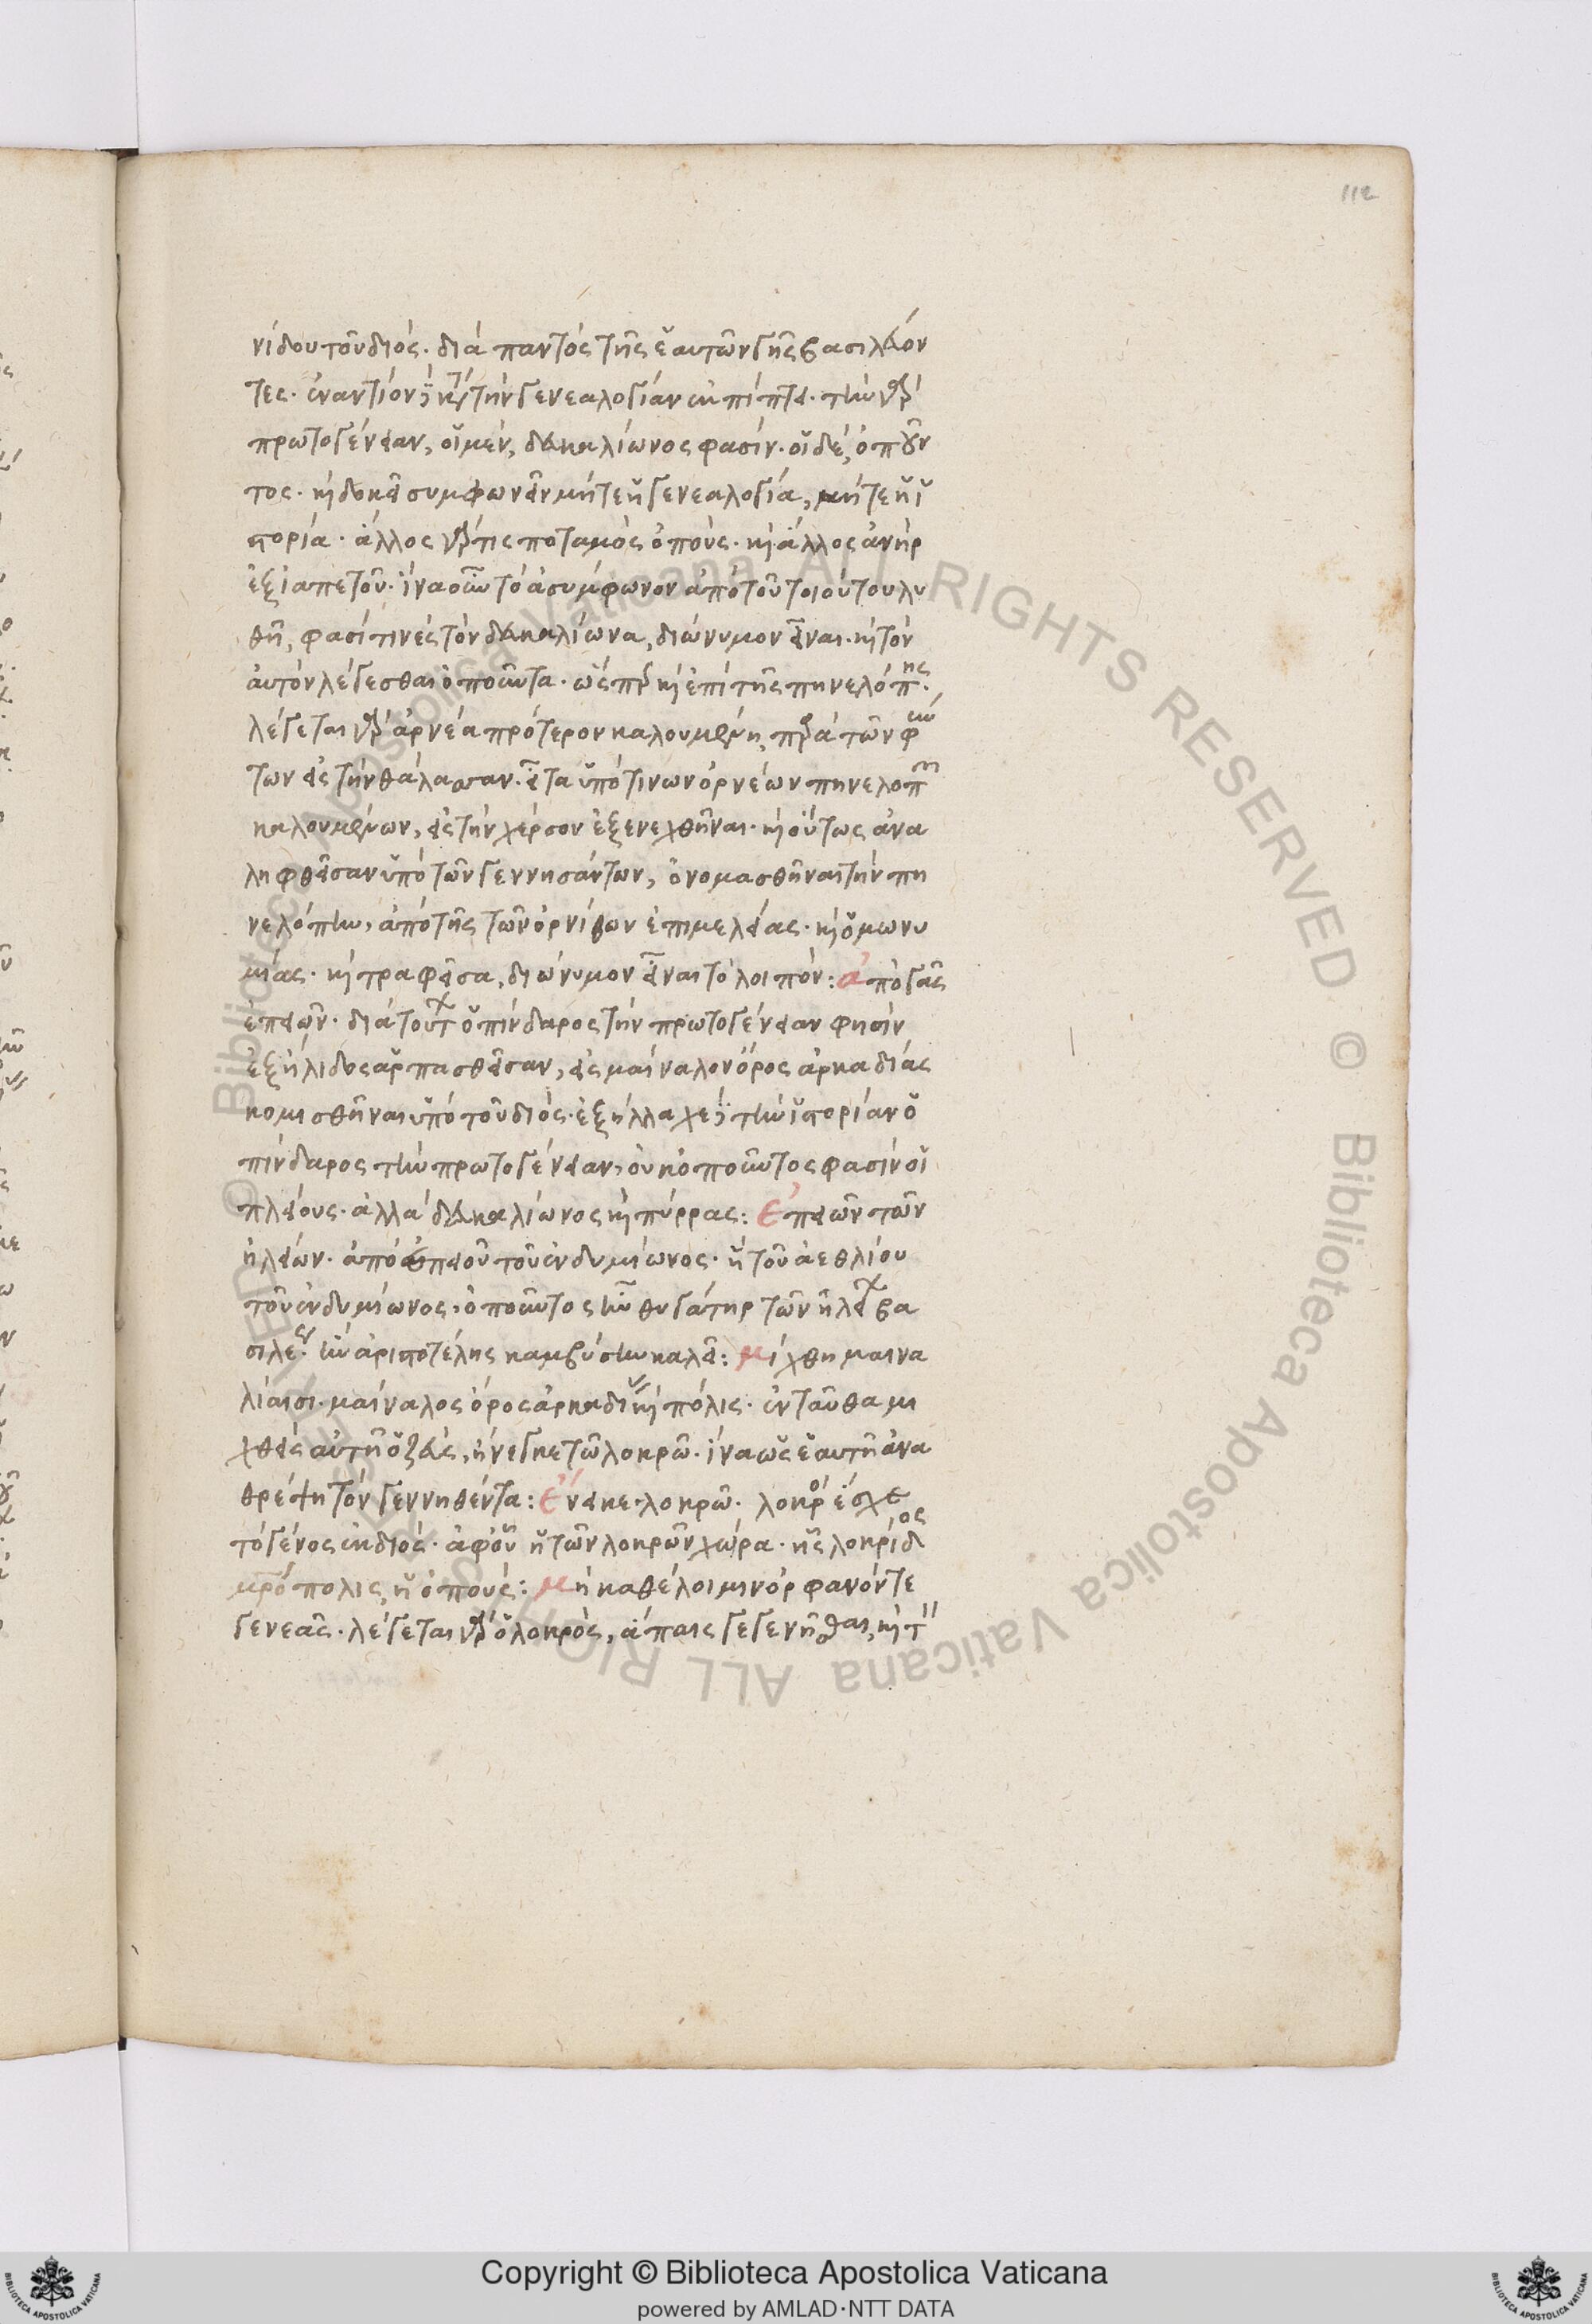 112
νίδου τοῦ διός· διὰ παντὸς τῆς ἑαυτῶν γῆς βασιλεύον
τες· ἐναντίον κ(αὶ) τὴν γενεαλογίαν ἐμπίπτει· τὴν γὰρ
πρωτογένειαν, οἱ μὲν, δευκαλίωνος φασίν· οἱ δέ, ὀποῦν
τος· κ(αὶ) δοκεῖ συμφωνεῖν μήτε ἡ γενεαλογία, μήτε ἡ ἱ
στορία· ἄλλος γάρ τις ποταμὸς ὀποῦς· κ(αὶ) ἄλλος ἀνὴρ
ἐξ ἰαπετοῦ· ἵνα οὖν τὸ ἀσύμφωνον ἀπὸ τοῦ τοιούτου λυ
θῆ, φασί τινες τὸν δευκαλίωνα, διώνυμον εἶναι· κ(αὶ) τὸν
αὐτὸν λέγεσθαι ὀποῦντα· ὥσπερ κ(αὶ) ἐπὶ τῆς πηνελόπης·
λέγεται γὰρ ἀρνέα πρότερον καλουμένη, παρὰ τῶν φύν
των εἰς τὴν θάλασσαν· εἶτα ὑπό τινων ὀρνέων πηνελοπῶν
καλουμένων, εἰς τὴν χέρσον ἐξενεχθῆναι· κ(αὶ) οὕτως ἀνα
ληφθεῖσαν ὑπὸ τῶν γεννησάντων, ὀνομασθῆναι τὴν πη
νελόπην, ἀπὸ τῆς τῶν ὀρνίθων ἐπιμελείας· κ(αὶ) ὁμωνυ
μίας· κ(αὶ) τραφεῖσα, διώνυμον εἶναι τὸ λοιπόν: ἀπὸ γᾶς
ἐπειῶν· διὰ τούτων ὁ πίνδαρος τὴν πρωτογένειαν φησὶν
ἐξ ἤλιδος ἁρπασθεῖσαν, εἰς μαίναλον ὄρος ἀρκαδίας
κομισθῆναι ὑπὸ τοῦ διός· ἐξήλλαχε δὲ τὴν ἱστορίαν ὁ
πίνδαρος τὴν πρωτογένειαν, οὐκ ὀποῦντος φασὶν οἱ
πλείους· ἀλλὰ δευκαλίωνος κ(αὶ) πύρρας: Ἐπειῶν τῶν
ἠλείων· ἀπὸ ἐπειοῦ τοῦ ἐνδυμίωνος· ἢ τοῦ ἀεθλίου
τοῦ ἐνδυμίωνος, ὀποῦντος ἦν θυγάτηρ τῶν ἠλείων βα
σιλέως· ἣν ἀριστοτέλης καμβύσην καλεῖ: μίχθη μαινα
λίαισι· μαίναλος ὄρος ἀρκαδίας κ(αὶ) πόλις· ἐνταῦθα μι
χθεὶς αὐτῆ ὁ ζεὺς, ἤνεγκε τῶ λοκρῶ· ἵνα ὡς ἑαυτῆ ἀνα
θρέψη τὸν γεννηθέντα: Ἔνεικε λοκρῶ· λοκρὸς ἔσχε
τὸ γένος ἐκ διός· ἀφ' οὗ ἡ τῶν λοκρῶν χώρα· ἧς λοκρίδος
μητρόπολις, ἡ ὀποῦς: μὴ καθέλοι μιν ὀρφανὸν τε
γενεᾶς· λέγεται γὰρ ὁ λοκρὸς, ἄπαις γεγενῆσθαι, κ(αὶ) τὴν
Copyright © Biblioteca Apostolica Vaticana
powered by AMLAD·NTT DATA